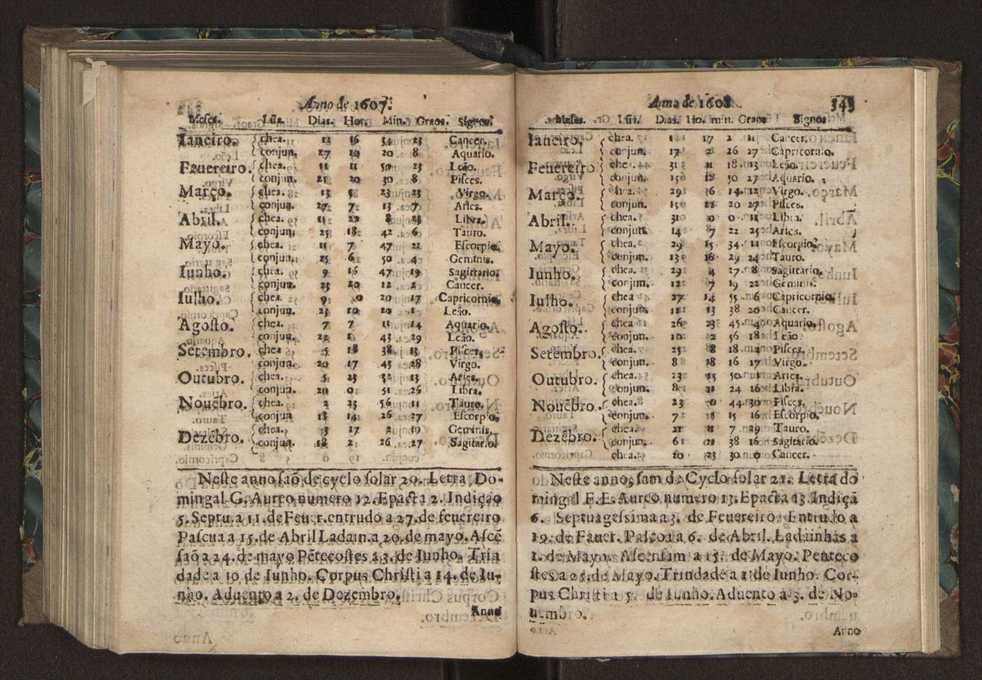 Anno de 1607.
Meses. Lũa. Dias. Hor. Min. Graos. Signos.
Ianeiro. chea. 12 16 54 23 Cancer.
conjun. 27 10 20 8 Aquario.
Feuereiro. chea. 11 11 50 23 Leão.
conjun. 25 20 30 8 Pisces.
Março. chea. 13 5 23 23 Virgo.
conjun. 27 7 13 7 Aries.
Abril. chea. 11 22 8 Libra.
conjun. 25 18 42 6 Tauro.
Mayo. chea. 11 7 47 21 Escorpio.
conjun. 25 6 50 4 Geminis.
Iunho. chea. 9 16 47 19 Sagitario.
conjun. 23 20 12 2 Cancer.
Iulho. chea. 9 0 20 17 Capricornio.
conjun. 23 10 20 1 Leão.
Agosto. chea. 7 7 11 14 Aquario.
conjun. 43 29 Leão.
Setembro. chea 5 18 38 13 Pisces.
conjun. 20 17 45 28 Virgo.
Outubro. chea. 5 23 52 13 Aries.
conjun. 20 0 51 26 Libra.
Nouẽbro. chea. 3 23 56 11 Tauro.
conjun 18 14 26 27 Escorpio.
Dezẽbro. chea. 3 17 2 10 Geminis.
conjun. 18 2 26 27 Sagitario.
Neste anno saõ de cyclo solar 20. Letra Do-
mingal G. Aureo numero 12. Epacta 2. Indição
5. Septu. a 11. de Feuer. entrudo a 27. de feuereiro
Pascua a 15. de Abril Ladain. a 20. de mayo. Ascẽ
saõ a 24. de mayo Pẽtecostes a 3. de Iunho. Trin
dade a 10 de Iunho. Corpus Christi a 14. de Iu-
nho. Aduento a 2. de Dezembro.
Anno
Anno de 1608. 343
Meses. Lũa. Dias. Ho. min. Graos Signos
Ianeiro. chea. 17 2 Cancer.
conjun. 17 2 26 27 Capricornio.
Feuereiro chea. 31 21 18 Leão.
conjun. 30 27 Aquario.
Março. chea. 29 16 14 12 Virgo.
conjun. 20 27 Pisces.
Abril. chea. 31 0 0 11 Libra.
conjun. 14 7 22 25 Aries.
Mayo. chea. 29 15 34 11 Escorpio.
conjun. 13 16 29 24 Tauro.
Iunho. chea. 29 4 17 8 Sagitario.
conjun. 12 7 19 22 Geminis.
Iulho. chea 27 14 55 6 Capricornio.
conjun. 13 38 20 Cancer.
Agosto. chea. 26 23 45 Aquario.
conjun. 10 2 56 18 Leão
Setembro. chea. 25 8 18 Pisces.
conjun. 8 18 16 17 Virgo.
Outubro. chea. 23 50 Aries.
conjun. 8 21 24 16 Libra.
Nouẽbro. chea. 23 0 44 Pisces.
conjun. 7 18 15 16 Escorpio.
Dezẽbro. chea. 21 7 Tauro.
conjun. 6 21 38 16 Sagitario.
chea. 10 23 30 0 Cancer.
Neste anno, sam de Cyclo solar 21. Letra do
mingal F. E. Aureo numero 13. Epacta 13. Indiçã
6. Septuagessima a 3. de Feuereiro Entrudo a
19. de Feuer. Pascoa a 6. de Abril. Ladainhas a
1. de Mayo. Ascensam a 15. de Mayo. Penteco
stes a 25. de Mayo. Trindade a 1. de Iunho. Cor-
pus Christi a 5. de Iunho. Aduento a 3. de No-
uembro.
Anno